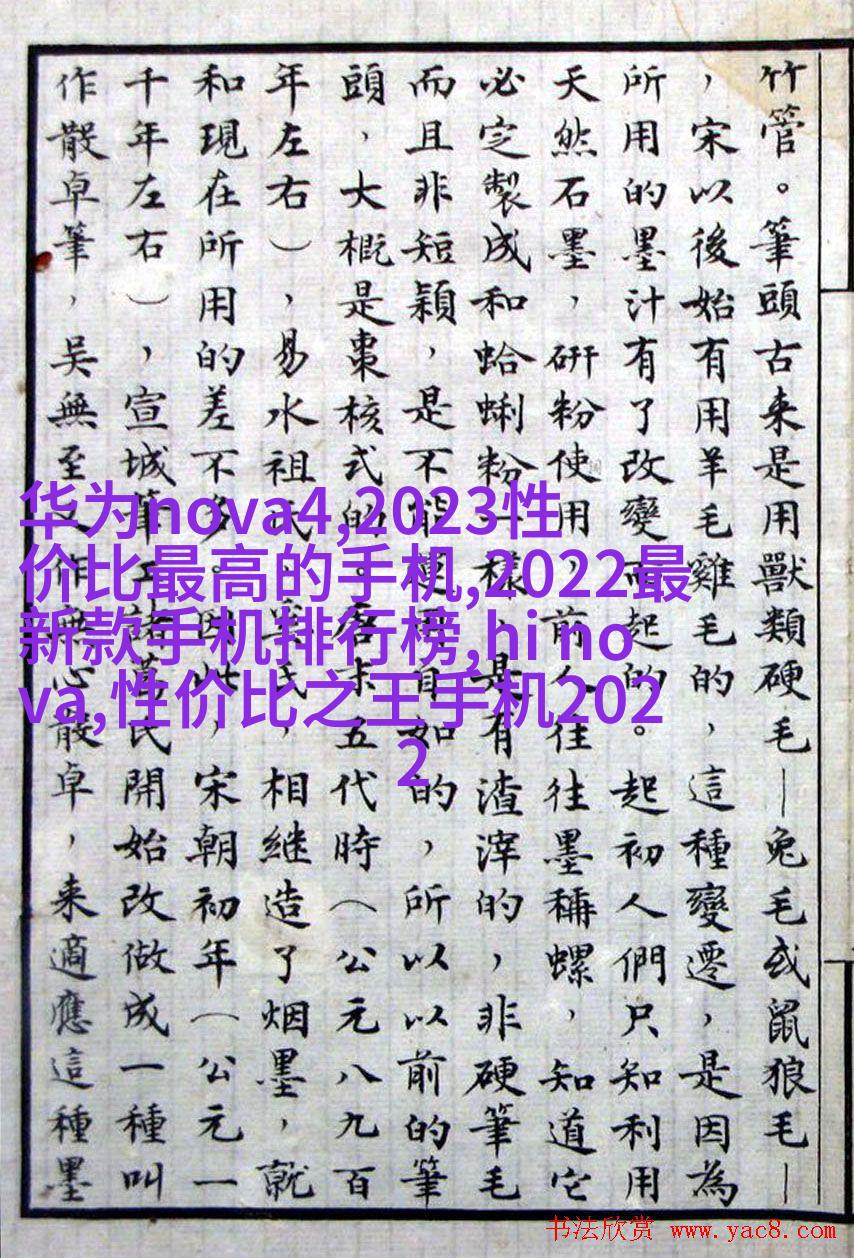 竹管。筆頭古来是用獸類硬毛—兔毛或鼠狼毛—
，宋以後始有用羊毛雞毛的，這種變遷，是因為
所用的墨汁有了改變而起的。起初人們只知利用
天然石墨，研粉使用，前人往往墨稱螺，知道它
必定製成和蛤蜊粉一樣，是有渣滓的，非硬筆毛
而且非短穎，是不能使用自如的，所以以前的筆
頭，大概是棗核式的。唐末五代時（公元八九百
年左右），易水祖氏、奚氏，相継造了烟墨，就
和現在所用的差不多。因此，宋朝初年（公元一
千年左右），宣城筆工諸葛氏開始改做成一種叫
作散卓筆，吳無至又作無心散卓，来適應這種墨
华为nova4,2023性
价比最高的手机,2022最
新款手机排行榜,hi no
va,性价比之王手机202
2
书法欣赏 www.yac8.com